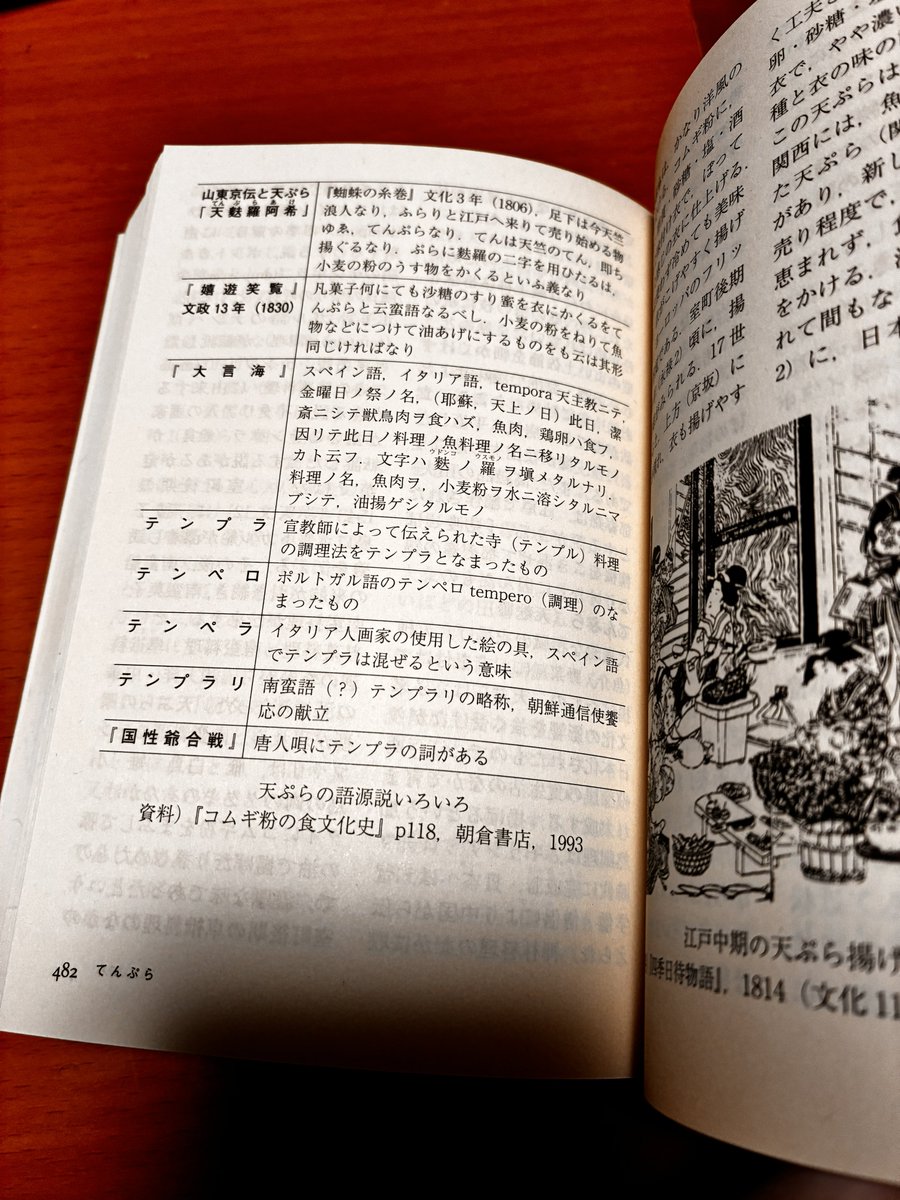 山東京伝と天ぷら
「天麩羅阿希」
てんぷらあげ
『蜘蛛の糸巻』文化3年（1806），足下は今天竺
浪人なり，ふらりと江戸へ来りて売り始める物
ゆゑ，てんぷらなり．てんは天竺のてん，即ち
揚ぐるなり．ぷらに麩羅の二字を用ひたるは，
小麦の粉のうす物をかくるといふ義なり
『嬉遊笑覧』
文政13年（1830）
凡菓子何にても沙糖のすり蜜を衣にかくるをて
んぷらと云蛮語なるべし．小麦の粉をねりて魚
物などにつけて油あげにするものをも云は其形
同じければなり
『大言海』
スペイン語，イタリア語，tempora天主教ニテ，
金曜日ノ祭ノ名，（耶蘇，天上ノ日）此日，潔
斎ニシテ獣鳥肉ヲ食ハズ，魚肉，鶏卵ハ食フ，
因リテ此日ノ料理ノ魚料理ノ名ニ移リタルモノ
カト云フ．文字ハ麩ノ羅ヲ塡メタルナリ．
ウドンコ ウスモノ
料理ノ名，魚肉ヲ，小麦粉ヲ水ニ溶シタルニマ
ブシテ，油揚ゲシタルモノ
テンプラ
宣教師によって伝えられた寺（テンプル）料理
の調理法をテンプラとなまったもの
テンペロ
ポルトガル語のテンペロtempero（調理）のな
まったもの
テンペラ
イタリア人画家の使用した絵の具，スペイン語
でテンプラは混ぜるという意味
テンプラリ
南蛮語（？）テンプラリの略称，朝鮮通信使饗
応の献立
『国性爺合戦』
唐人唄にテンプラの詞がある
天ぷらの語源説いろいろ
資料）『コムギ粉の食文化史』p118，朝倉書店，1993
482 てんぷら
く工夫
卵・砂糖・
衣で，やや濃い
種と衣の味の
この天ぷらは
関西には，魚
た天ぷら（関
があり，新し
売り程度で，
恵まれず，
をかける．
れて間もな
2）に，日本
かなり洋風の
コムギ粉に，
砂糖・塩・酒
衣で，ぼって
に仕上げる．
冷めても美味
げやすく揚げ
ロッパのフリッ
である．室町後期
2）頃に，揚
られる．17世
上方（京坂）に
衣も揚げやす
江戸中期の天ぷら揚げ
四季日待物語』，1814（文化11